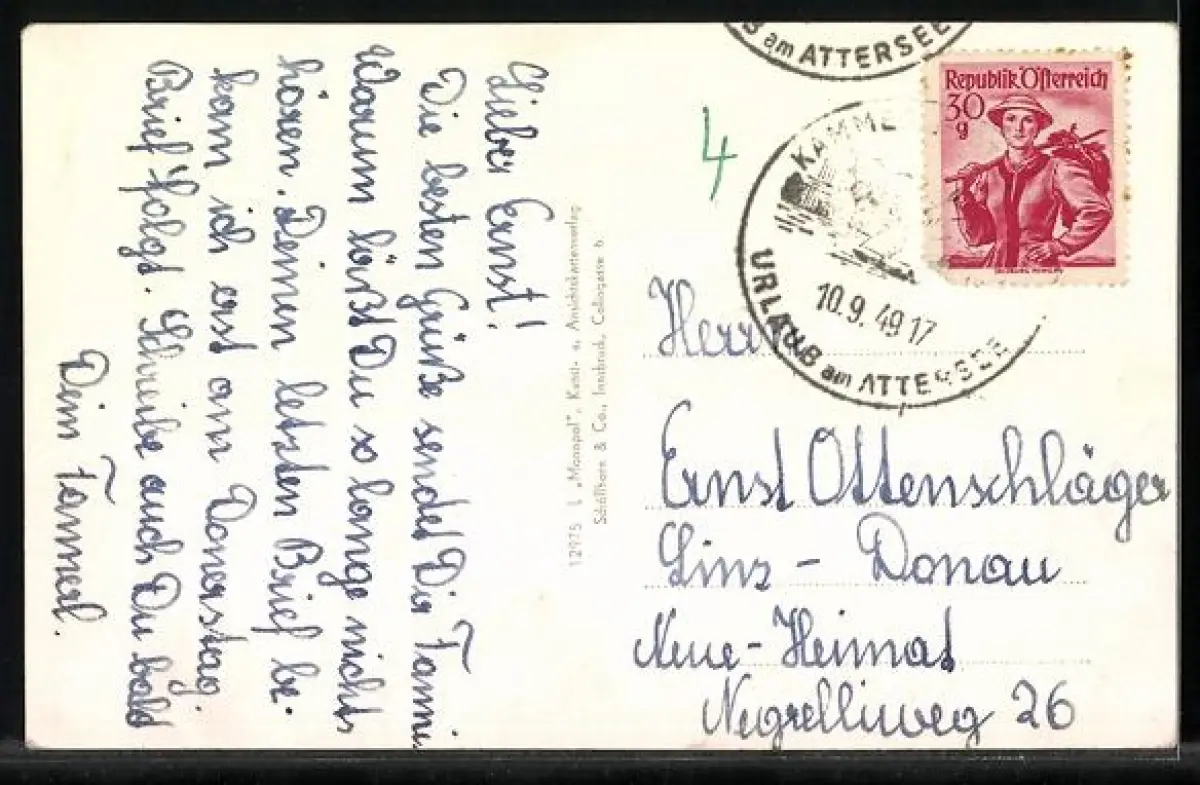 Lieber Ernst!
Die besten Grüße sendet Dir Fanni.
Warum läßt Du so lange nichts
hören. Deinen letzten Brief be-
kam ich erst am Donerstag.
Brief folgt. Schreibe auch Du bald
Dein Fannerl.
12975 L „Monopol", Kunst- u. Ansichtskartenverlag
Schöllhorn & Co., Innsbruck, Colingasse
4
am ATTERSEE
Republik Österreich
30
g
KAMME
10.9.49 17
URLAUB am ATTERSEE
Herr
Ernst Ottenschläger
Linz - Donau
Neue-Heimat
Negrelliweg 26